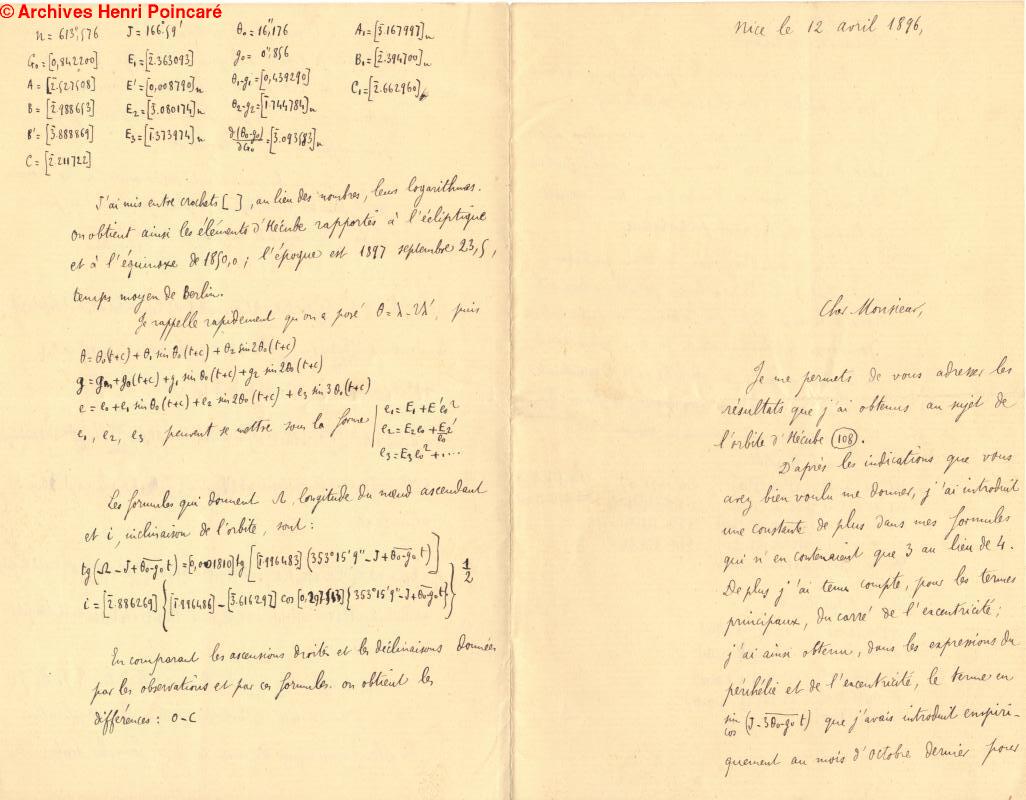 © Archives Henri Poincaré
n = 613",576   J = 166°.59'   θ₀ = 16",176   A₁ = [3̄.167997]ₙ
G₀ = [0,842200]   E₁ = [2̄.363093]   g₀ = 0",856   B₁ = [2̄.394700]ₙ
A = [2̄.527508]   E' = [0,008790]ₙ   θ₁-g₁ = [0,439290]   C₁ = [2̄.662960]
B = [2̄.988653]   E₂ = [3̄.080174]ₙ   θ₂-g₂ = [1̄.744784]ₙ
B' = [3̄.888869]   E₃ = [1̄.373974]ₙ   ∂(θ₀-g₀)/∂G₀ = [3̄.093583]ₙ
C = [2̄.211722]
J'ai mis entre crochets [ ], au lieu des nombres, leurs logarithmes.
On obtient ainsi les éléments d'Hécube rapportés à l'écliptique
et à l'équinoxe de 1850,0 ; l'époque est 1897 septembre 23,5,
temps moyen de Berlin.
Je rappelle rapidement qu'on a posé θ = λ - 2λ', puis
θ = θ₀(t+c) + θ₁ sin θ₀(t+c) + θ₂ sin 2θ₀(t+c)
g = g₀₀ + g₀(t+c) + g₁ sin θ₀(t+c) + g₂ sin 2θ₀(t+c)
e = e₀ + e₁ sin θ₀(t+c) + e₂ sin 2θ₀(t+c) + e₃ sin 3θ₀(t+c)
e₁, e₂, e₃ peuvent se mettre sous la forme | e₁ = E₁ + E'e₀²
e₂ = E₂e₀ + E₂'/e₀
e₃ = E₃e₀² + ....
Les formules qui donnent Ω, longitude du nœud ascendant
et i, inclinaison de l'orbite, sont :
tg(Ω - J + θ₀-g₀ t) = [0,001810] tg [[1̄.996483] (353°15'9" - J + θ₀-g₀ t)]
i = [2̄.886269] {[1̄.996486] - [3̄.616297] cos [0,297513] {353°15'9" - J + θ₀-g₀ t}}^1/2
En comparant les ascensions droites et les déclinaisons données
par les observations et par ces formules. on obtient les
différences : O - C
Nice le 12 avril 1896,
Cher Monsieur,
Je me permets de vous adresser les
résultats que j'ai obtenus au sujet de
l'orbite d'Hécube (108).
D'après les indications que vous
avez bien voulu me donner, j'ai introduit
une constante de plus dans mes formules
qui n'en contenaient que 3 au lieu de 4.
De plus j'ai tenu compte, pour les termes
principaux, du carré de l'excentricité ;
j'ai ainsi obtenu, dans les expressions du
périhélie et de l'excentricité, le terme en
sin/cos (J - 3θ₀-g₀ t) que j'avais introduit empiri-
quement au mois d'Octobre dernier pour